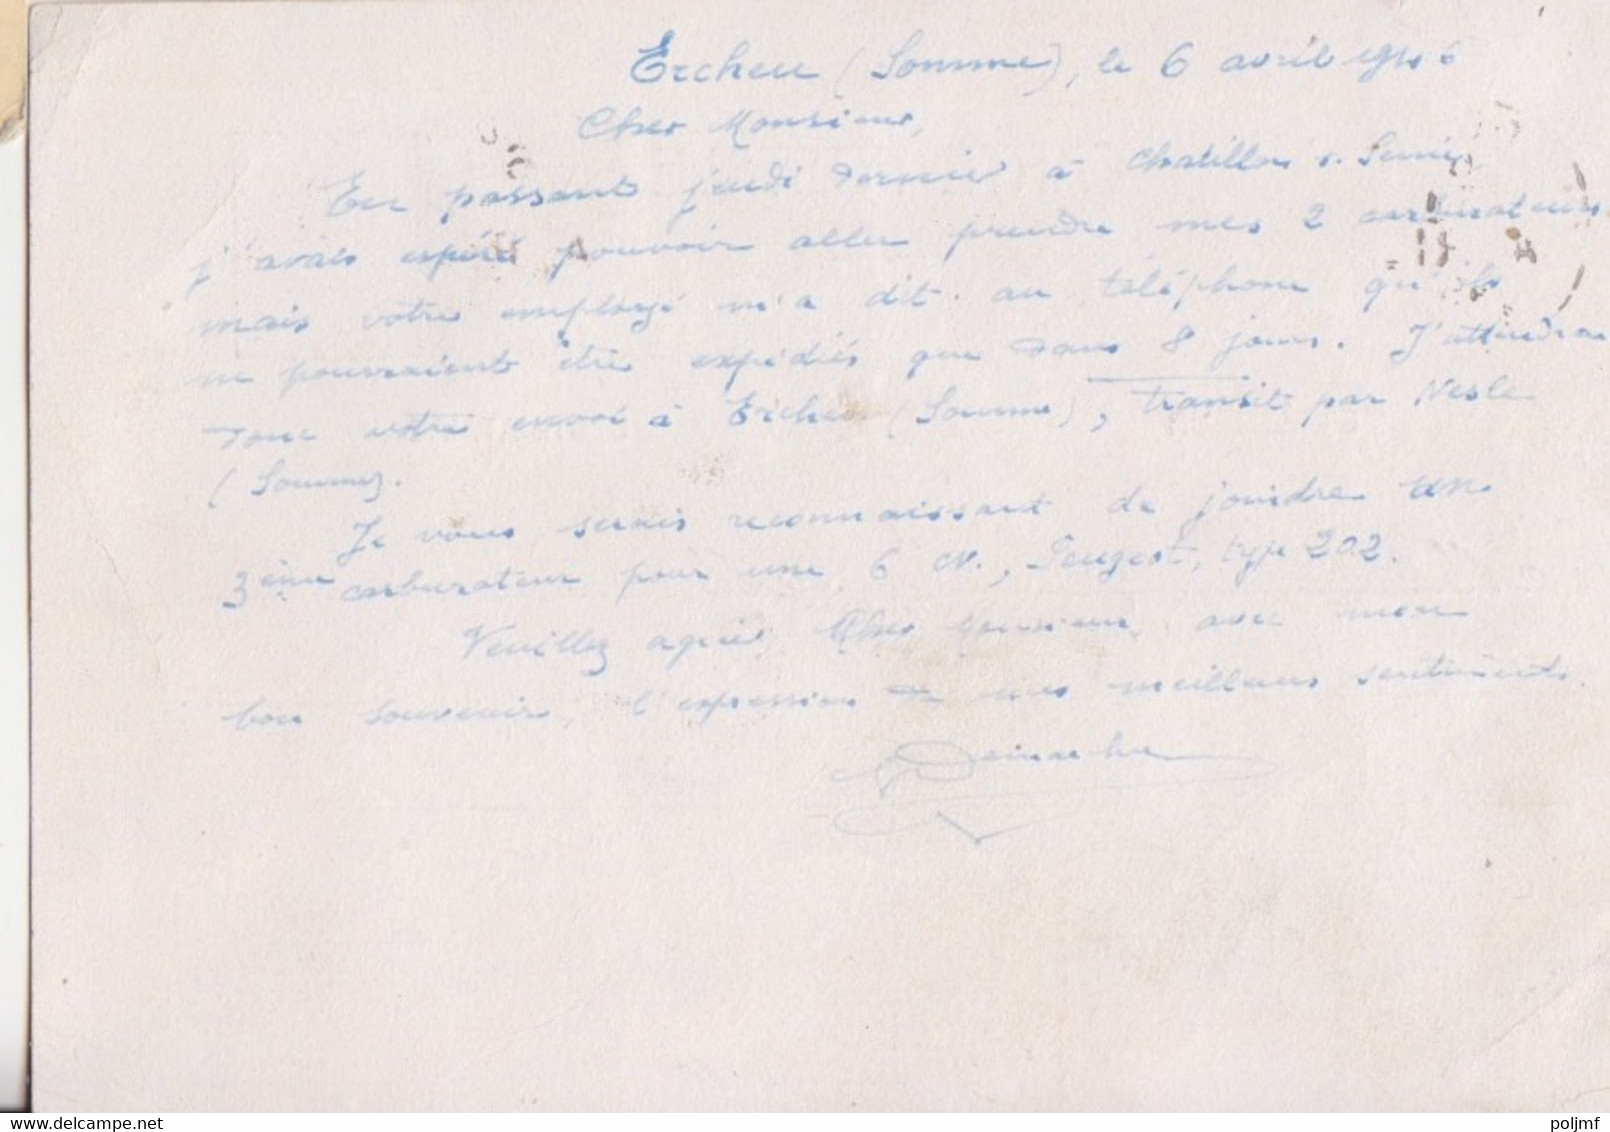 Ercheu (Somme), le 6 avril 1946
Cher Monsieur,
En passant jeudi dernier à Chatillon s. Seine
j'avais espéré pouvoir aller prendre mes 2 carburateurs
mais votre employé m'a dit au téléphone qu'ils
ne pourraient être expédiés que dans 8 jours. J'attendrai
donc votre envoi à Ercheu (Somme), transit par Nesle
(Somme).
Je vous serais reconnaissant de joindre un
3ème carburateur pour une 6 CV., Peugeot, type 202.
Veuillez agréer Cher Monsieur, avec mon
bon souvenir, l'expression de mes meilleurs sentiments.
delcampe.net
poljmf